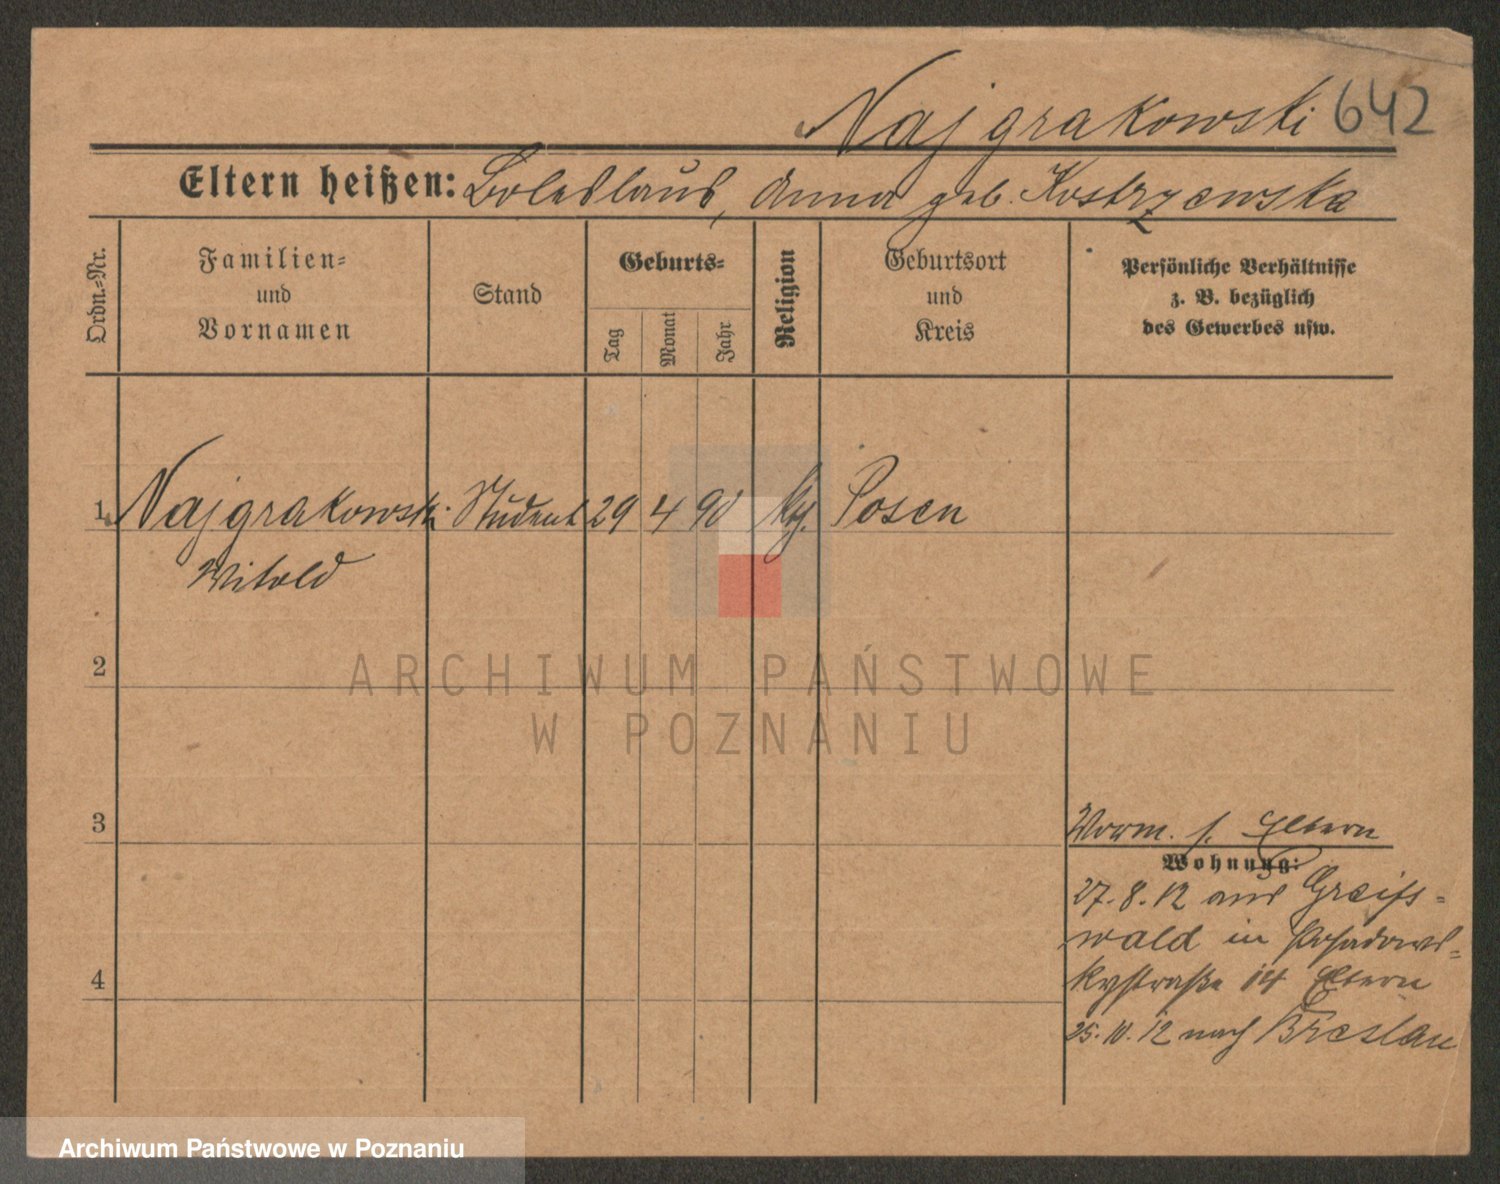 Najgrakowski 642
Eltern heißen: Boleslaus, Anna geb. Kostrzewska
Ordn.-Nr.
Familien-
und
Vornamen
Stand
Geburts-
Tag
Monat
Jahr
Religion
Geburtsort
und
Kreis
Persönliche Verhältnisse
z. B. bezüglich
des Gewerbes usw.
1 Najgrakowski Student 29 4 90 Posen
Witold
2
ARCHIWUM PAŃSTWOWE
W POZNANIU
3
Vorm. s. Eltern
Wohnung:
27.8.12 aus Greifs-
wald in Posadows-
kystraße 14 Eltern
4
25.10.12 nach Breslau
Archiwum Państwowe w Poznaniu